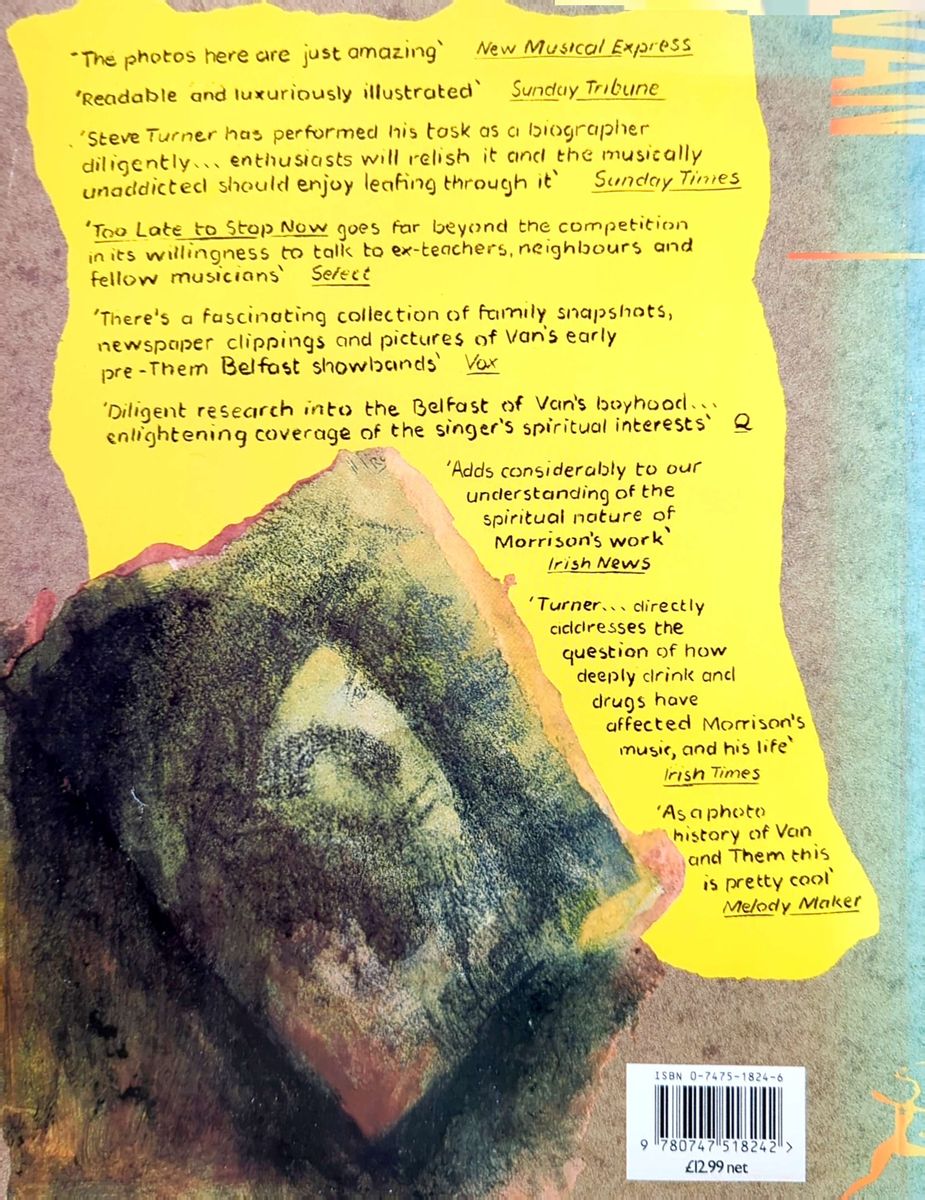 'The photos here are just amazing' New Musical Express
'Readable and luxuriously illustrated' Sunday Tribune
'Steve Turner has performed his task as a biographer
diligently... enthusiasts will relish it and the musically
unaddicted should enjoy leafing through it' Sunday Times
'Too Late to Stop Now goes far beyond the competition
in its willingness to talk to ex-teachers, neighbours and
fellow musicians' Select
'There's a fascinating collection of family snapshots,
newspaper clippings and pictures of Van's early
pre-Them Belfast showbands' Vox
'Diligent research into the Belfast of Van's boyhood...
enlightening coverage of the singer's spiritual interests' Q
'Adds considerably to our
understanding of the
spiritual nature of
Morrison's work'
Irish News
'Turner... directly
addresses the
question of how
deeply drink and
drugs have
affected Morrison's
music, and his life'
Irish Times
'As a photo
history of Van
and Them this
is pretty cool'
Melody Maker
VAN
ISBN 0-7475-1824-6
9 780747 518242 >
£12.99 net